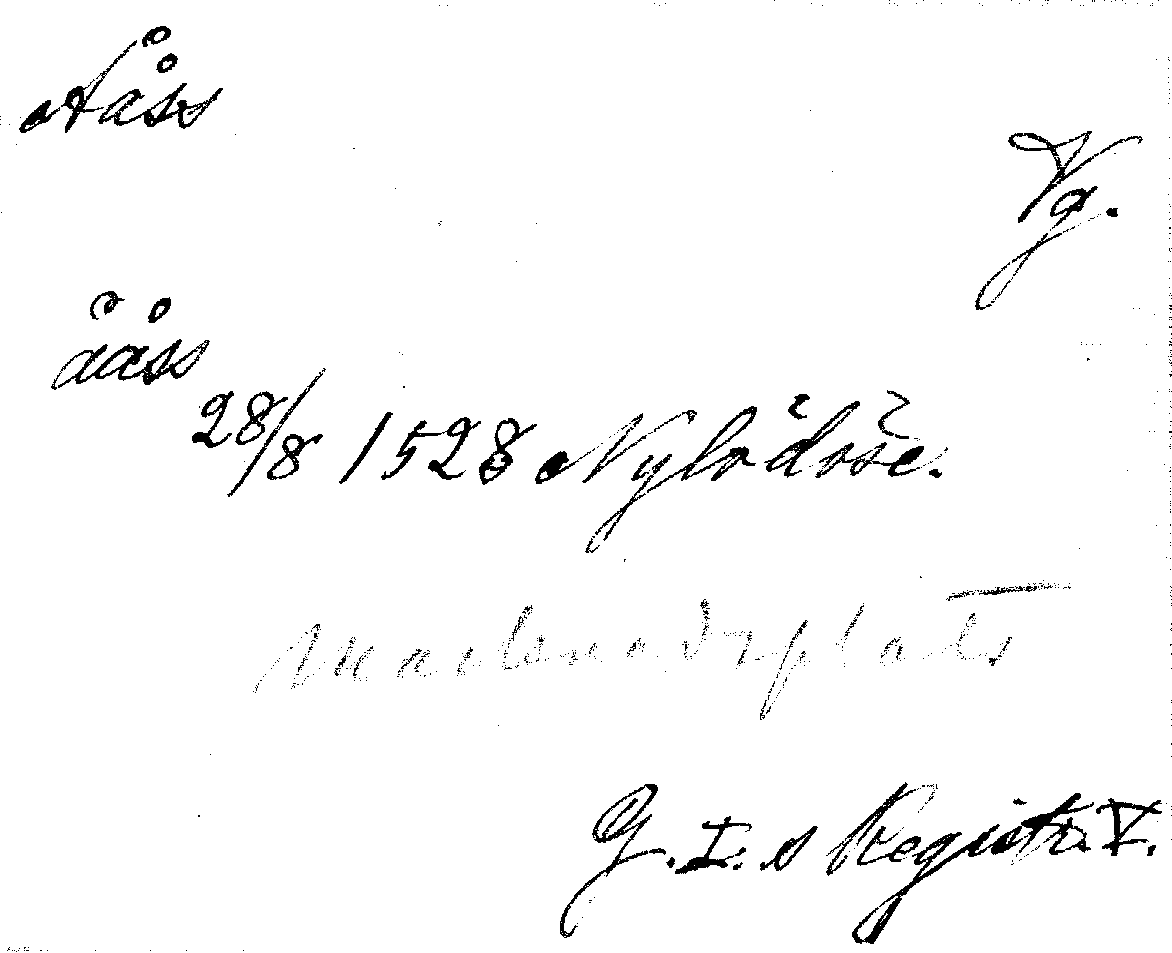 Åås
Vg.
ååss
28/8 1528 Nylödöse.
Marknadsplats
G. I. s Registr. V.